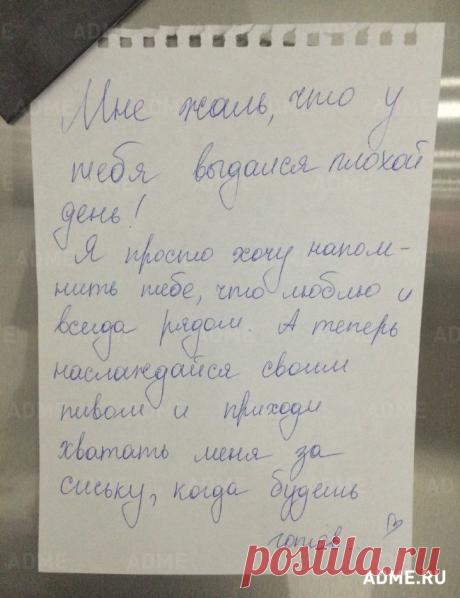 Мне жаль, что у
тебя выдался плохой
день!
Я просто хочу напом-
нить тебе, что люблю и
всегда рядом. А теперь
наслаждайся своим
пивом и приходи
хватать меня за
сиську, когда будешь
готов
postila.ru
ADME.RU